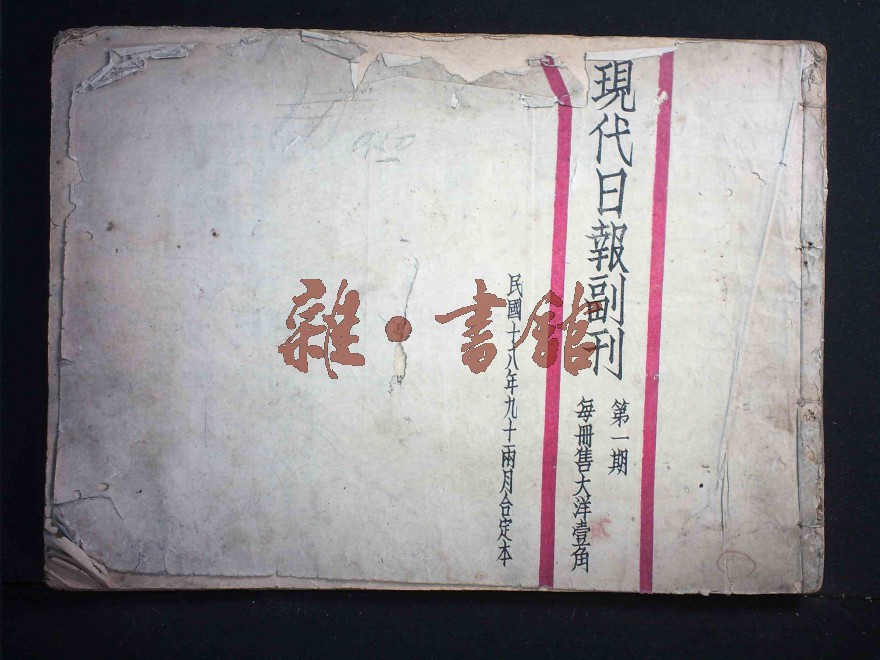 現代日報副刊
第一期
每冊售大洋壹角
民國十八年九十兩月合定本
雜·書館